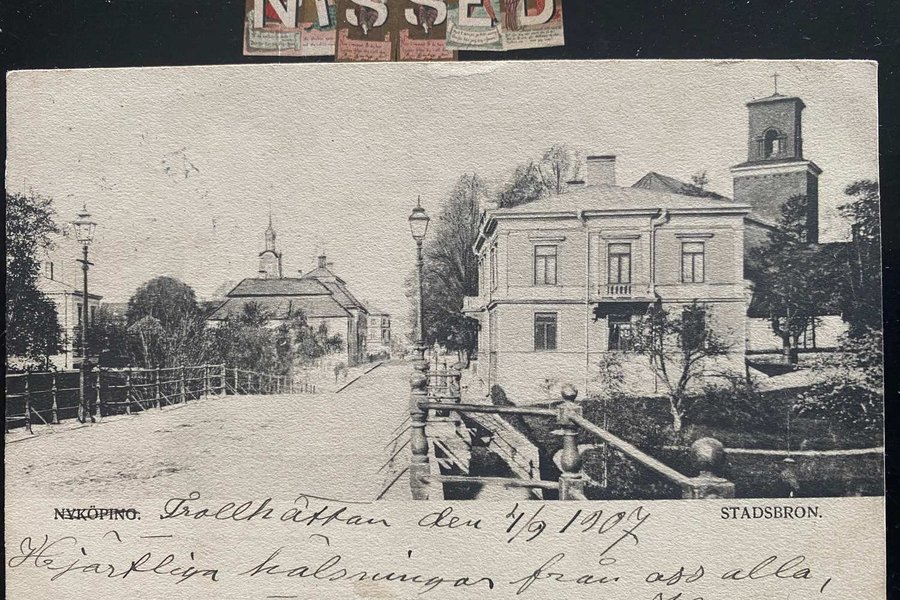 NISSED
NYKÖPING. Trollhättan den 4/9 1907 STADSBRON.
Hjärtliga hälsningar från oss alla,